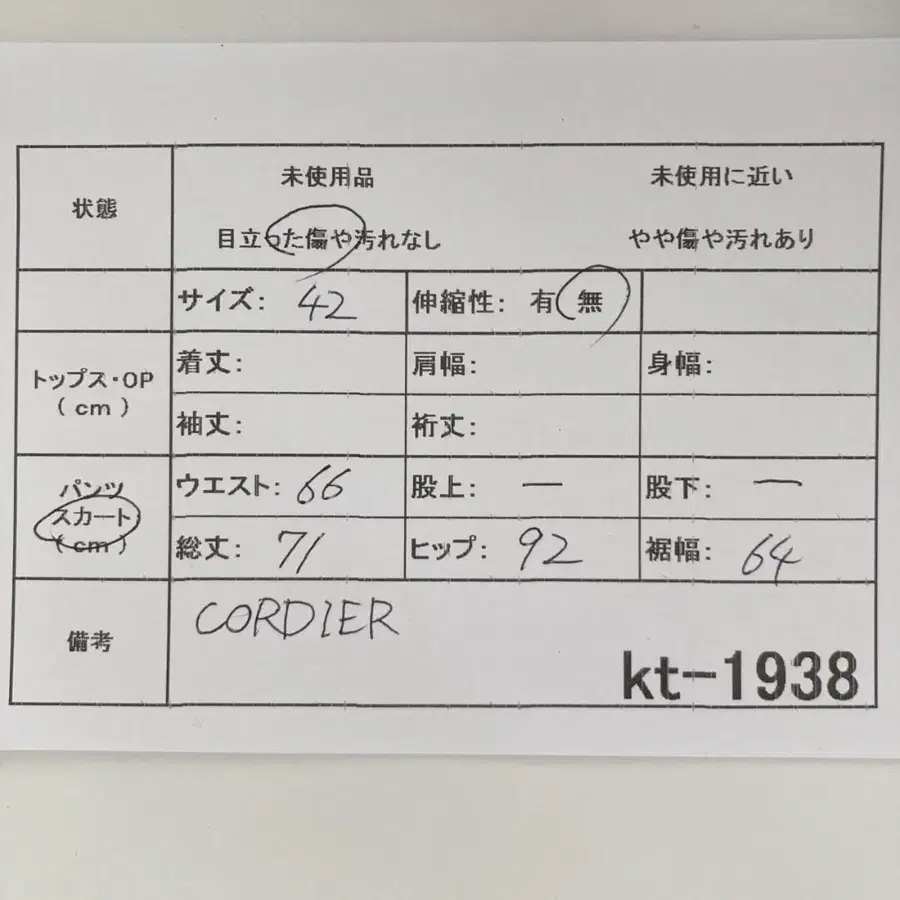 状態
未使用品 未使用に近い
目立った傷や汚れなし やや傷や汚れあり
サイズ: 42 伸縮性: 有 無
トップス・OP
(cm)
着丈: 肩幅: 身幅:
袖丈: 裄丈:
パンツ
スカート
(cm)
ウエスト: 66 股上: ー 股下: ー
総丈: 71 ヒップ: 92 裾幅: 64
備考
CORDIER
kt-1938